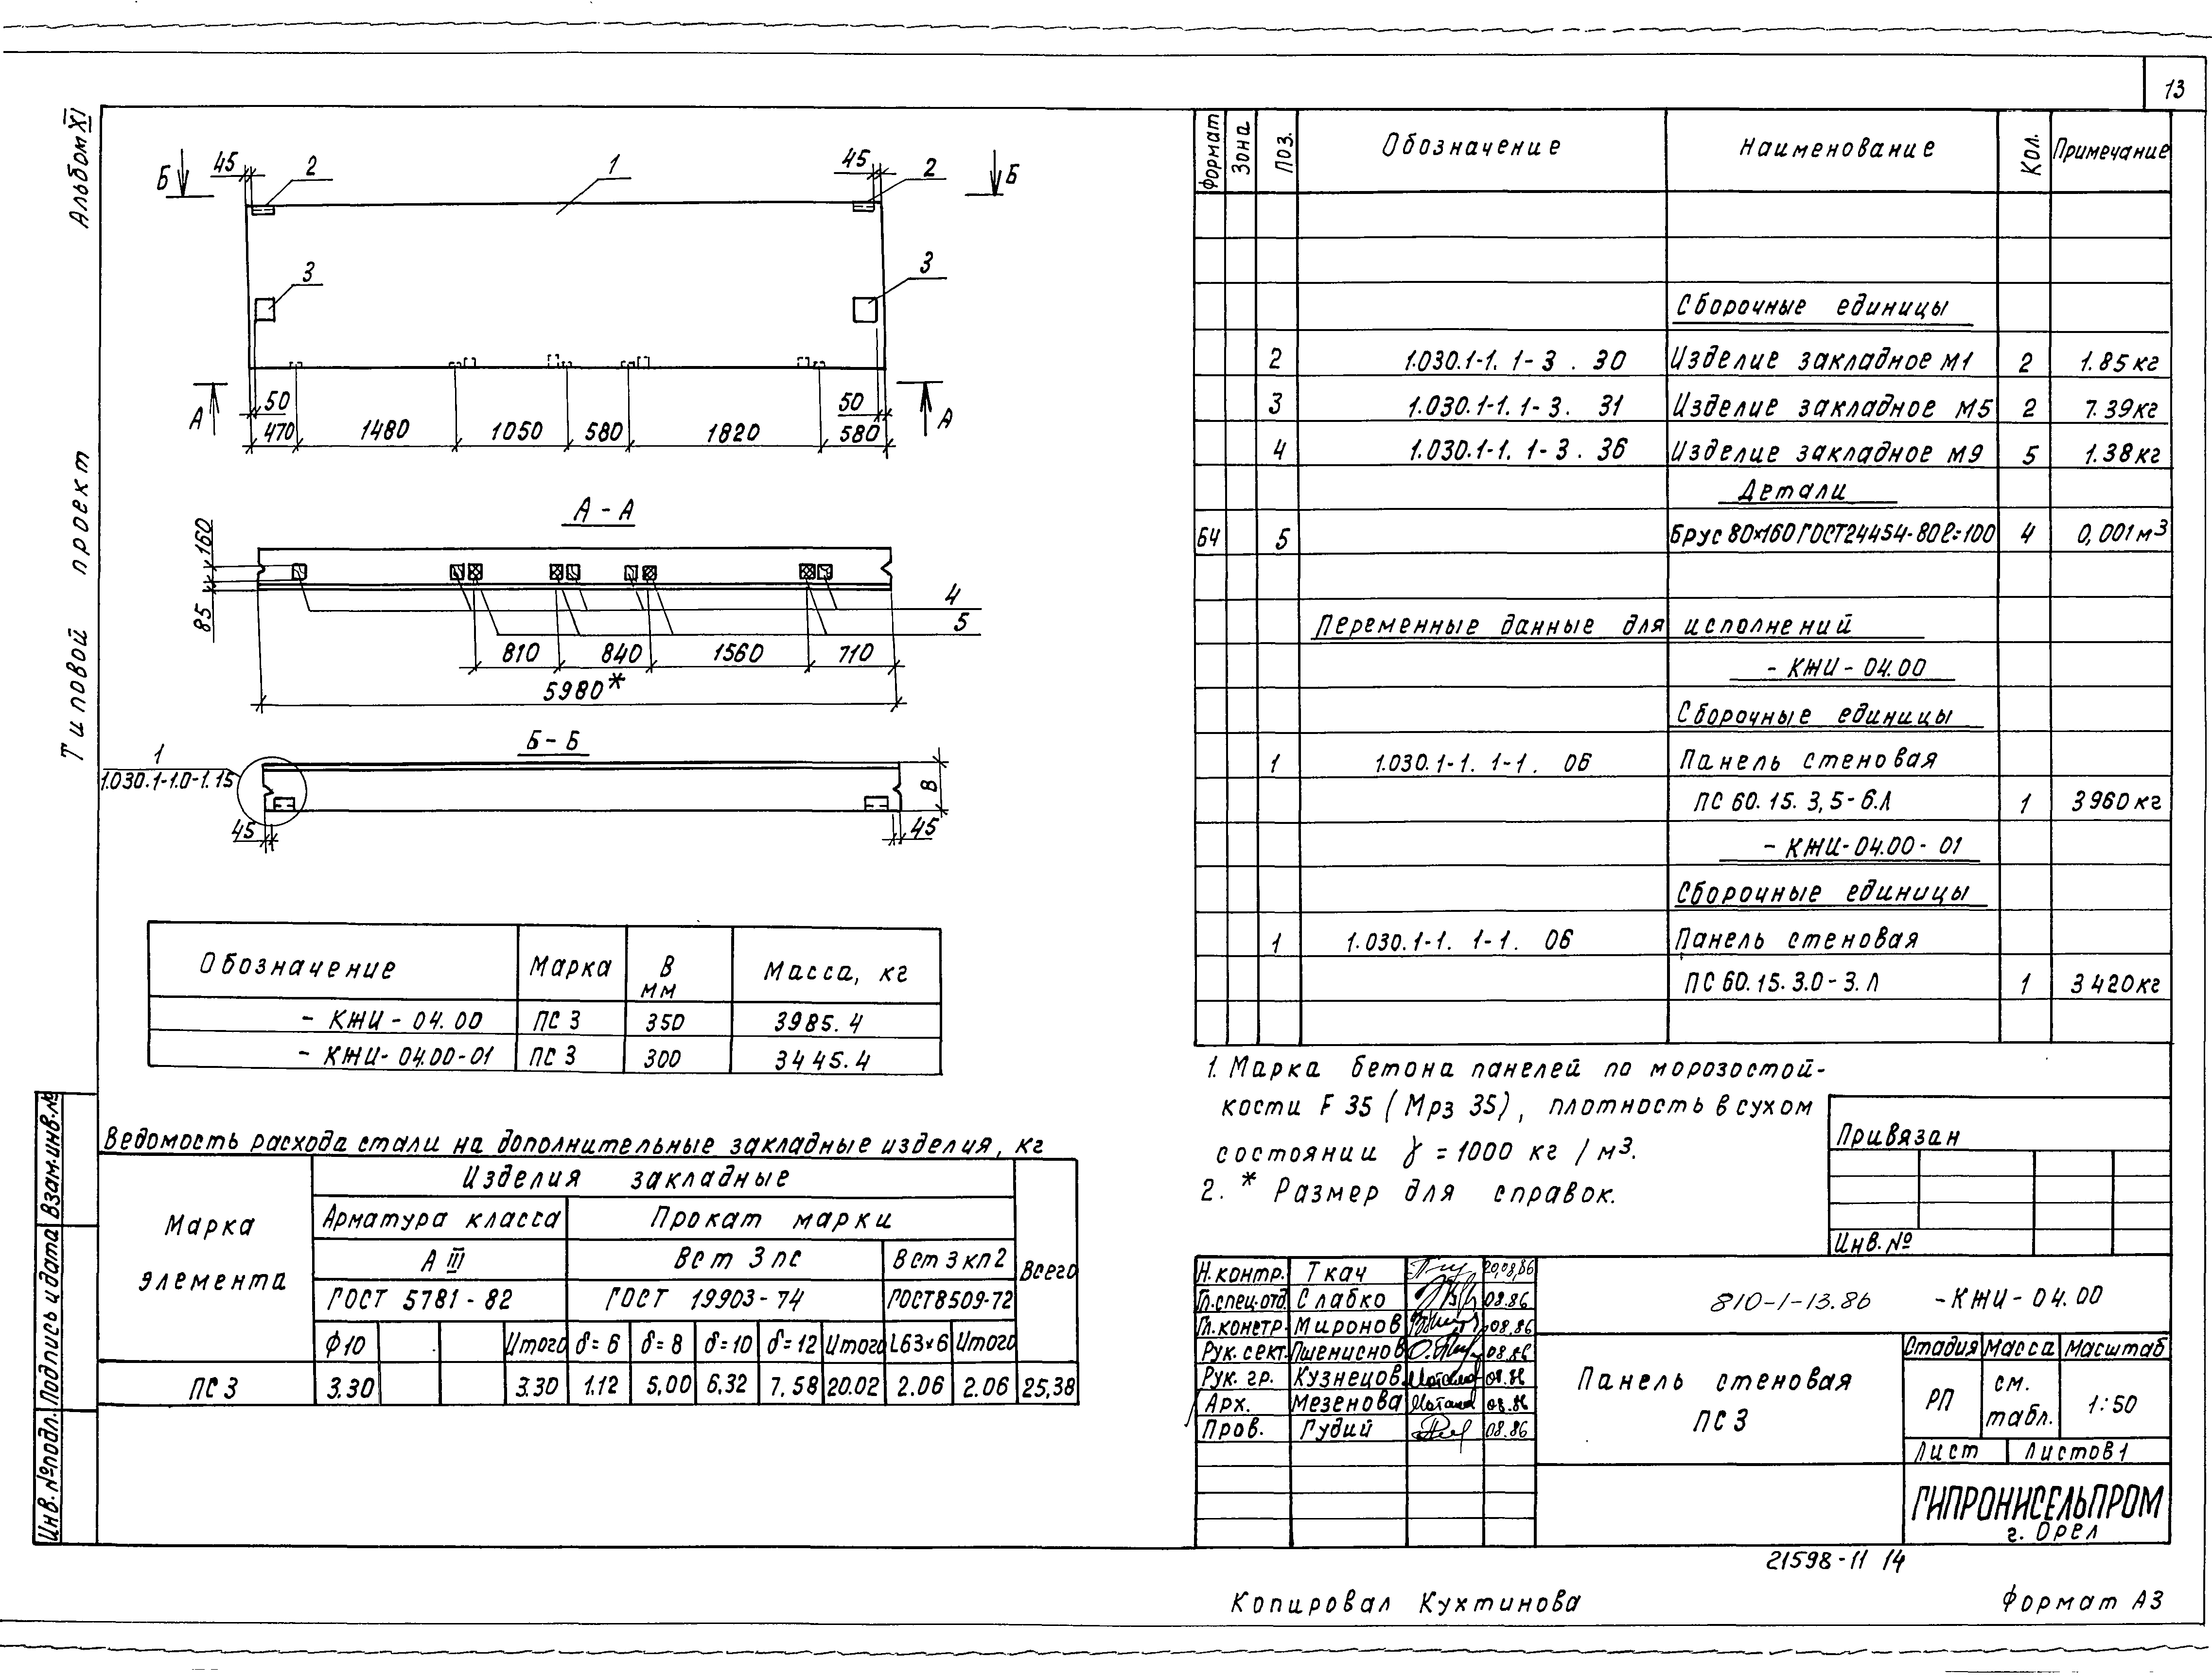 13
Альбом XI
Типовой проект
Б 45 2 1 45 2 Б
3 3
А 50 50 А
470 1480 1050 580 1820 580
А - А
160
85
4
5
810 840 1560 710
5980*
Б - Б
1
1.030.1-1.0-1.15
В
45 45
Обозначение Марка В мм Масса, кг
- КЖИ - 04.00 ПС 3 350 3985.4
- КЖИ- 04.00-01 ПС 3 300 3445.4
Ведомость расхода стали на дополнительные закладные изделия, кг
Марка элемента Изделия закладные Всего
Арматура класса Прокат марки
А III Вст 3 пс Вст 3 кп2
ГОСТ 5781-82 ГОСТ 19903-74 ГОСТ8509-72
Ф10 Итого δ=6 δ=8 δ=10 δ=12 Итого L63×6 Итого
ПС 3 3.30 3.30 1.12 5,00 6,32 7,58 20.02 2.06 2.06 25,38
Формат Зона Поз. Обозначение Наименование Кол. Примечание
Сборочные единицы
2 1.030.1-1. 1-3 . 30 Изделие закладное М1 2 1.85кг
3 1.030.1-1. 1-3. 31 Изделие закладное М5 2 7.39кг
4 1.030.1-1. 1-3. 36 Изделие закладное М9 5 1.38кг
Детали
БЧ 5 Брус 80×160 ГОСТ24454-80 ℓ=100 4 0,001м3
Переменные данные для исполнений
- КЖИ - 04.00
Сборочные единицы
1 1.030.1-1. 1-1. 06 Панель стеновая
ПС 60.15. 3,5-6.Л 1 3960кг
- КЖИ-04.00-01
Сборочные единицы
1 1.030.1-1. 1-1. 06 Панель стеновая
ПС 60.15.3.0-3.Л 1 3420кг
1. Марка бетона панелей по морозостой-
кости F 35 (Мрз 35), плотность в сухом
состоянии γ = 1000 кг / м3.
2. * Размер для справок.
Привязан
Инв. №
Н.контр. Ткач 20,08,86
Гл.спец.отд. Слабко 08.86
Гл.констр. Миронов 08.86
Рук. сект. Пшениснов 08.86
Рук. гр. Кузнецов 08.86
Арх. Мезенова 08.86
Пров. Гудий 08.86
810-1-13.86 -КЖИ-04.00
Панель стеновая
ПС 3
Стадия Масса Масштаб
РП см. табл. 1:50
Лист Листов 1
ГИПРОНИСЕЛЬПРОМ
г. Орел
21598-11 14
Копировал Кухтинова
Формат А3
Взам.инв.№
Подпись и дата
Инв.№подл.